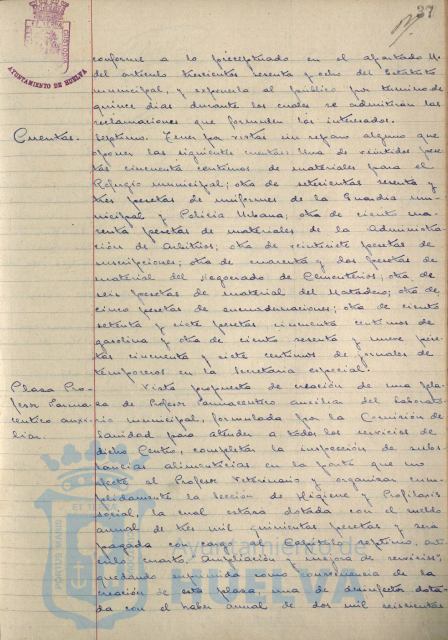 37
AYUNTAMIENTO DE HUELVA
conforme a lo preceptuado en el apartado
del artículo trescientos sesenta y ocho del Estatuto
municipal, y exponerla al público por término de
quince días durante los cuales se admitirán las
reclamaciones que formulen los interesados.
Cuentas.
Séptimo. Tener por vistas sin reparo alguno que
oponer las siguientes cuentas: Una de veintidós pese-
tas cincuenta céntimos de materiales para el
Refugio municipal; otra de setecientas sesenta y
tres pesetas de uniformes de la Guardia mu-
nicipal y Policía Urbana; otra de ciento cua-
renta pesetas de materiales de la Administra-
ción de Arbitrios; otra de veintisiete pesetas de
suscripciones; otra de cuarenta y dos pesetas de
material del Negociado de Cementerios; otra de
seis pesetas de material del Matadero; otra de
cinco pesetas de encuadernaciones; otra de ciento
setenta y siete pesetas, cincuenta céntimos de
gasolina y otra de ciento sesenta y nueve pese-
tas cincuenta y siete céntimos de jornales de
temporeros en la Secretaría especial.
Plaza Pro-
fesor Farma-
céutico auxi-
liar.
Vista propuesta de creación de una pla-
za de Profesor Farmacéutico auxiliar del Laborato-
rio municipal, formulada por la Comisión de
Sanidad para atender a todos los servicios de
dicho Centro, completar la inspección de subs-
tancias alimenticias en la parte que no
afecte al Profesor Veterinario y organizar cum-
plidamente la Sección de Higiene y Profilaxis
social, la cual estará dotada con el sueldo
anual de tres mil quinientas pesetas y será
pagada con cargo al Capítulo séptimo, artí-
culo cuarto "Ampliación y mejora de servicios",
quedando suprimida como consecuencia de la
creación de esta plaza, una de desinfector dota-
da con el haber anual de dos mil seiscientas
PORTUS MARIS ET TE
Ayuntamiento de
HUELVA